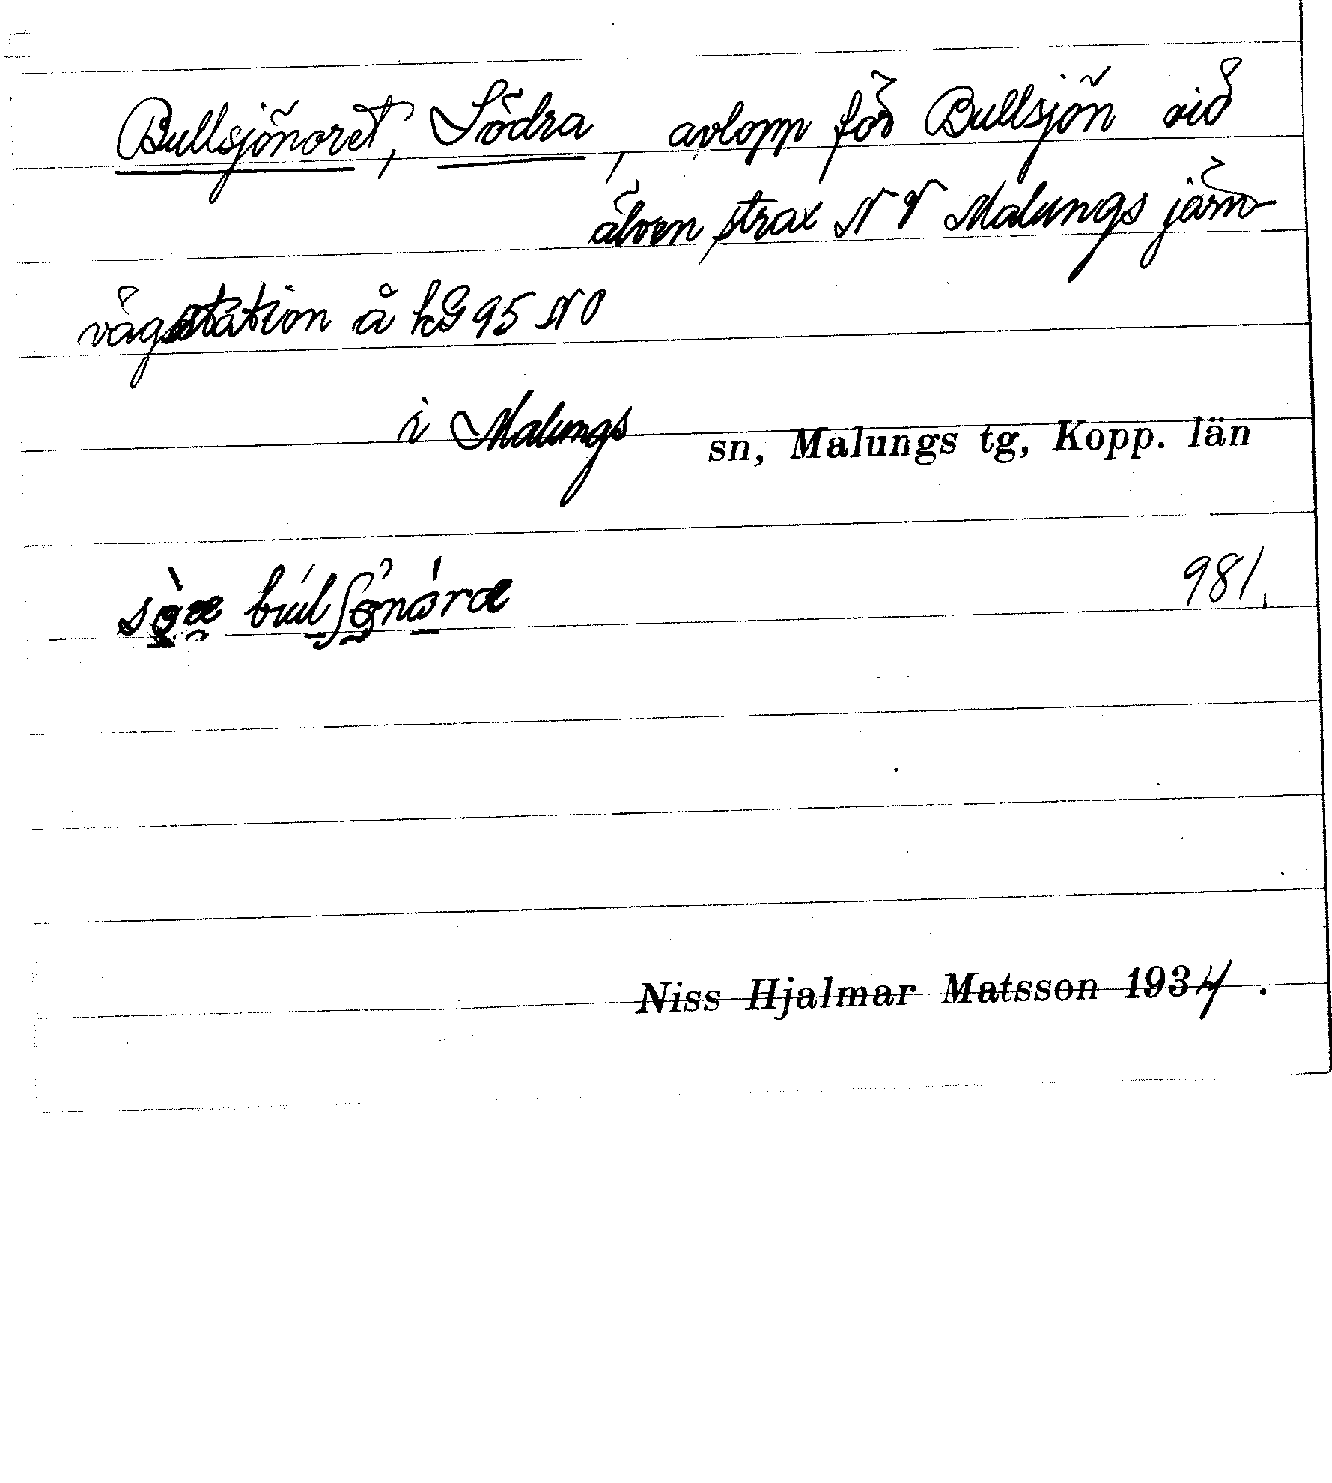 Bullsjönoret, Södra, avlopp för Bullsjön vid
älven strax NV Malungs järn-
vägsstation å kG 95 NO
i Malungs sn, Malungs tg, Kopp. län
981.
Niss Hjalmar Matsson 1934.